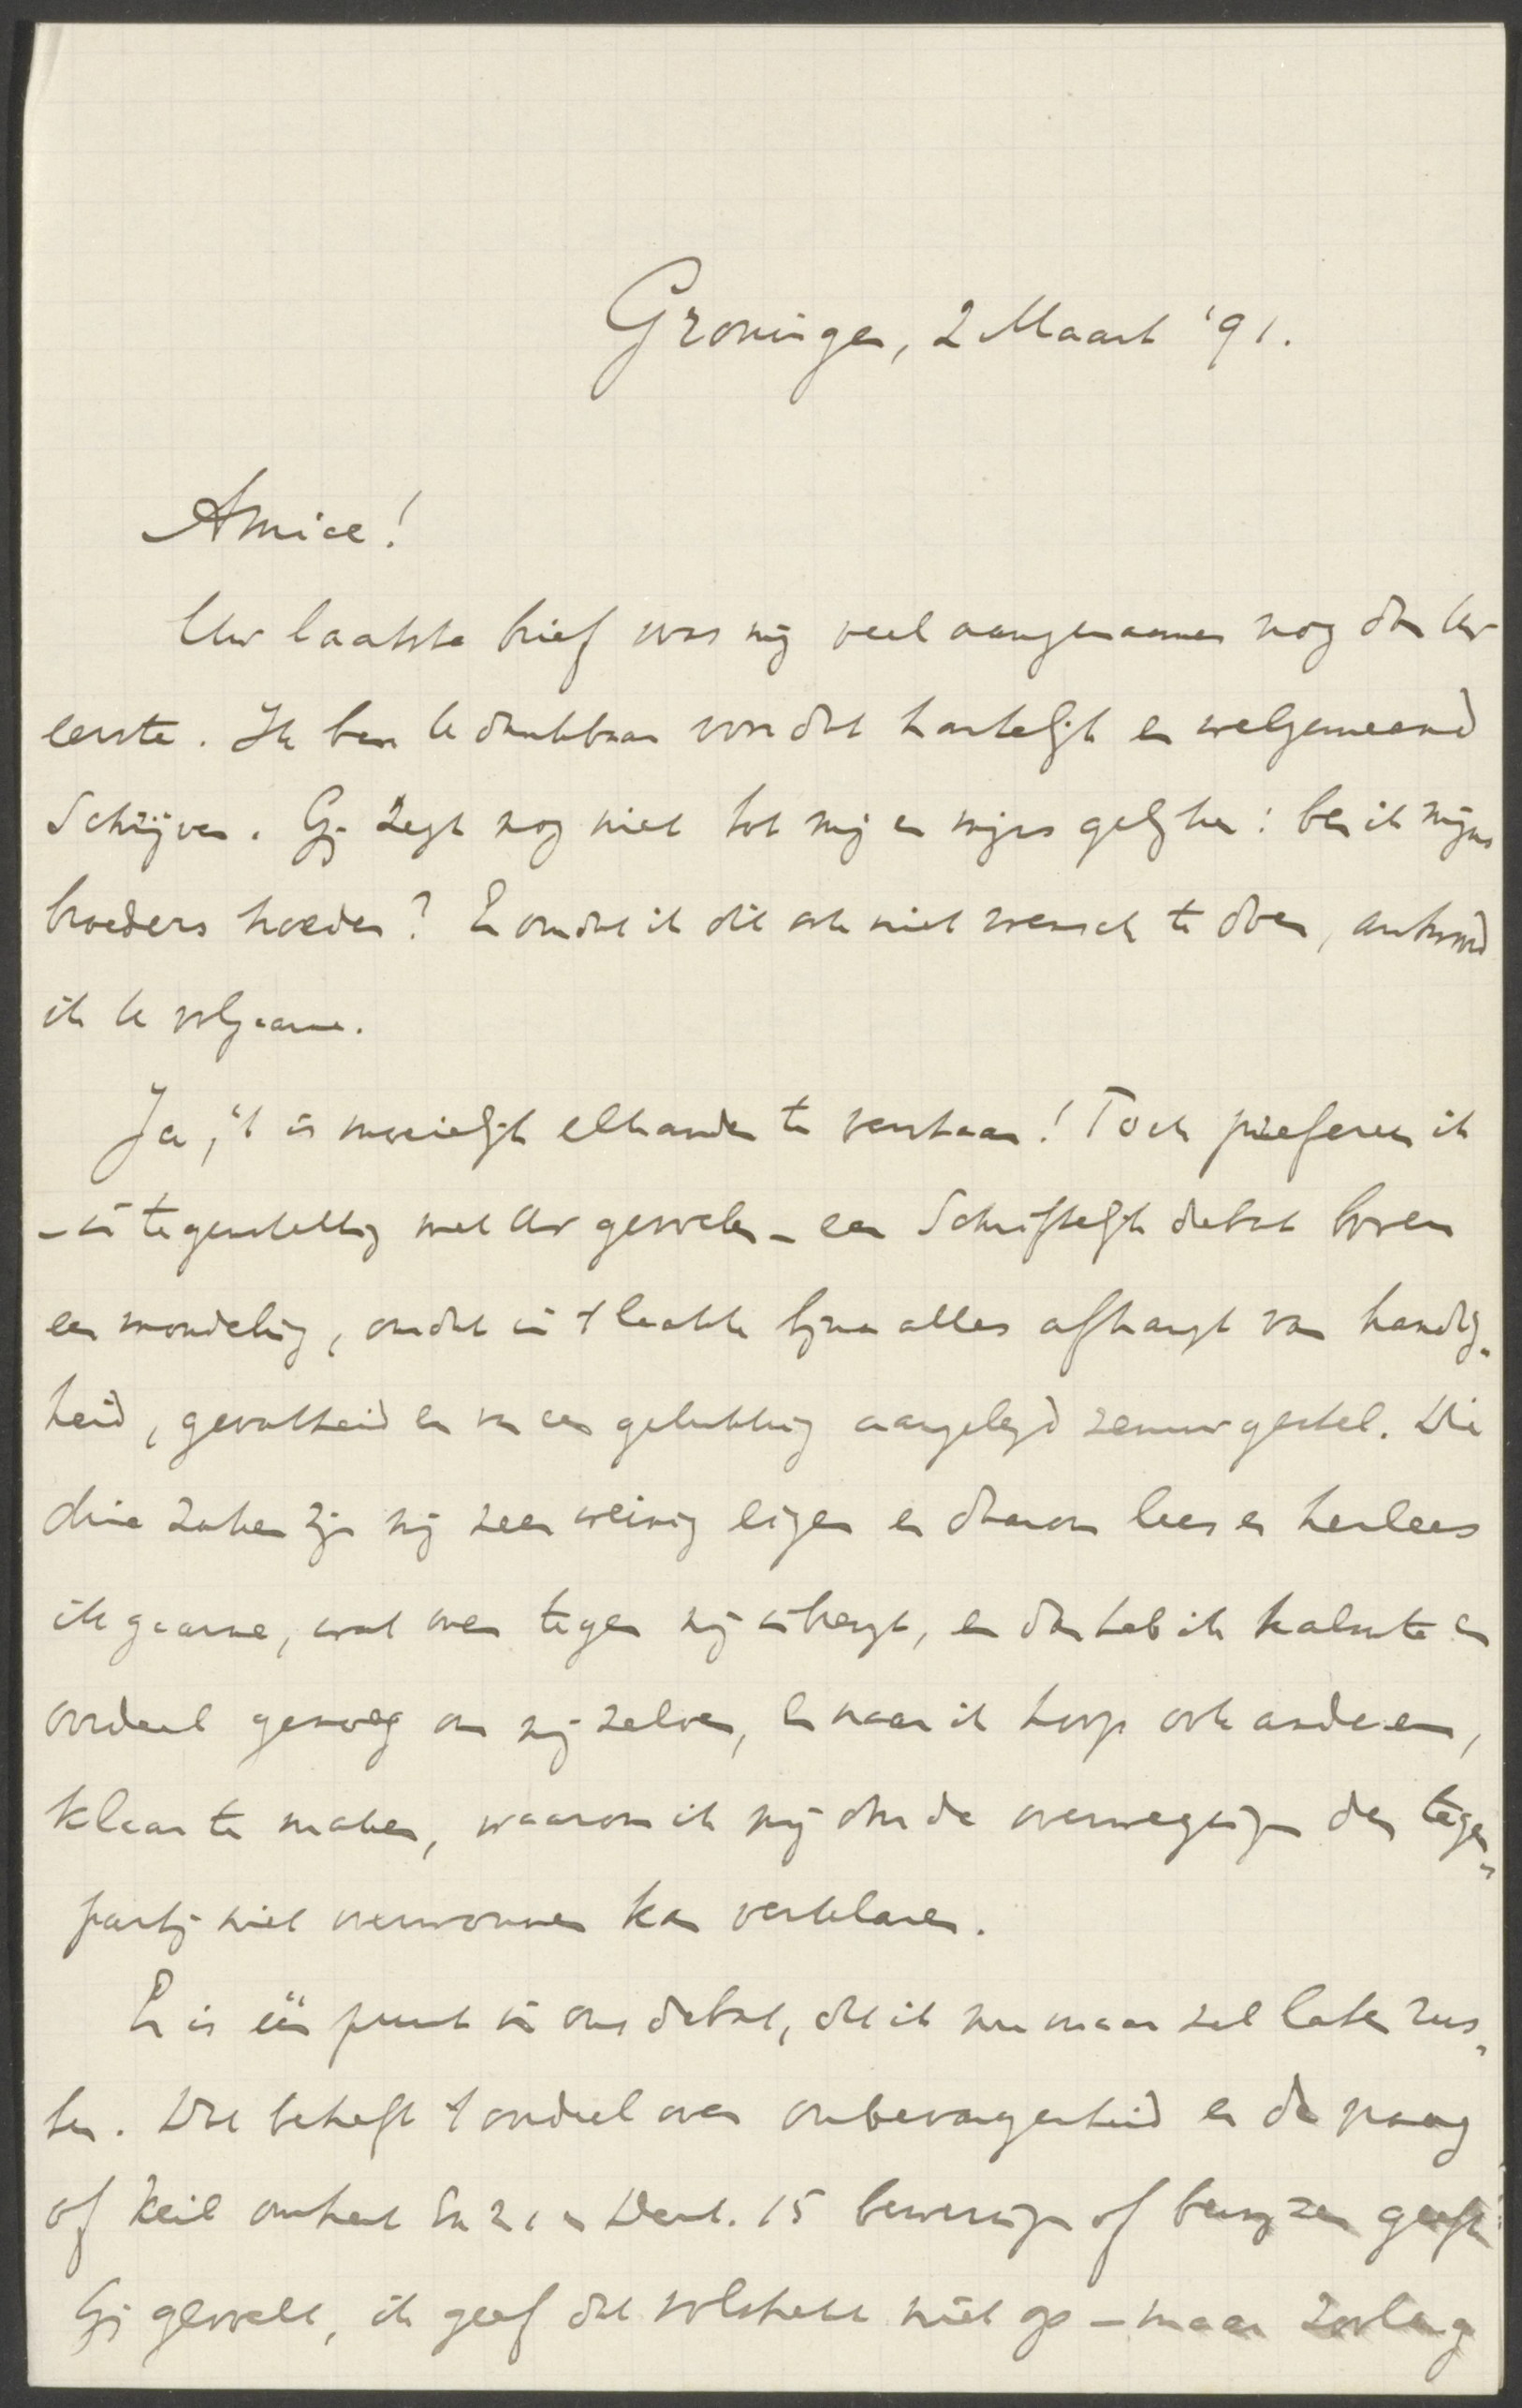 Groningen, 2 Maart '91.
Amice!
Uw laatste brief was mij veel aangenamer nog dan Uw
eerste. Ik ben U dankbaar voor dat hartelijk en welgemeend
schrijven. Gij zegt nog niet tot mij en mijns gelijken: ben ik mijns
broeders hoeder? En omdat ik dit ook niet wensch te doen, antwoord
ik U volgaarne.
Ja, 't is moeielijk elkander te verstaan! Toch prefereer ik
- in tegenstelling met Uw gevoelen - een schriftelijk debat boven
een mondeling, omdat in 't laatste bijna alles afhangt van handig-
heid, gevatheid en van een gelukkig aangelegd zenuwgestel. Die
drie zaken zijn mij zeer weinig eigen en daarom lees en herlees
ik gaarne, wat men tegen mij inbrengt, en dan heb ik kalmte en
oordeel genoeg om mij zelven, en naar ik hoop ook anderen,
klaar te maken, waarom ik mij door de overwegingen der tegen-
partij niet overwonnen kan verklaren.
Er is één punt in ons debat, dat ik nu maar zal laten rus-
ten. Dat betreft 't oordeel over onbevangenheid en de vraag
of Keil omtrent Ex 21 en Deut. 15 beweringen of bewijzen geeft.
Gij gevoelt, ik geef dat volstrekt niet op - maar zoolang